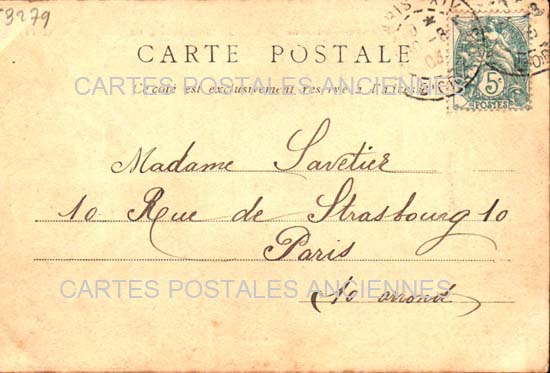 3279
CARTE POSTALE
CARTES POSTALES ANCIENNES
Ce côté est exclusivement réservé à l'adresse
5c
POSTES
Madame Savetier
10 Rue de Strasbourg 10
Paris
CARTES POSTALES ANCIENNES